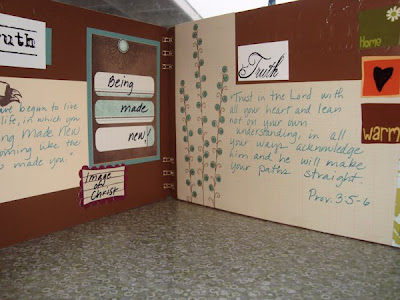 ruth
ave begun to live
life, in which you
ng made new
oming like the
o made you."
Being
made
new!
Image
of
Christ
Truth
"Trust in the Lord with
all your heart and lean
not on your own
understanding, in all
your ways acknowledge
him and he will make
your paths straight.
Prov. 3:5-6
Home
warm